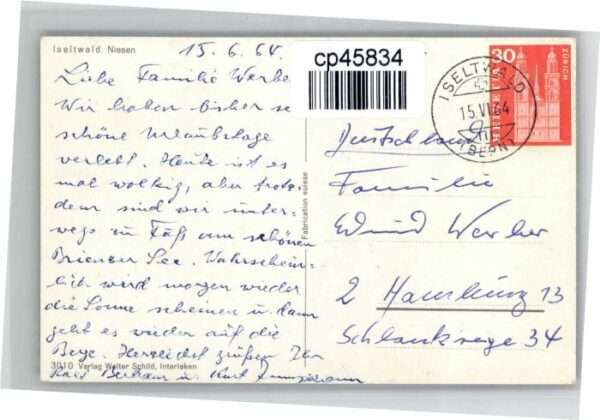 Iseltwald. Niesen
15.6.64.
cp45834
30
ZÜRICH
ISELTWALD
15.VI.64
(BERN)
Liebe Familie Werber
Wir haben bisher se
schöne Urlaubstage
verlebt. Heute ist es
mal wolkig, aber trotz-
dem sind wir unter-
wegs zu Fuß am schönen
Brienzer See. Wahrschein-
lich wird morgen wieder
die Sonne scheinen u. dann
geht es wieder auf die
Berge. Herzlichst grüßen Ihr
u. Kurt
3010 Verlag Walter Schild, Interlaken
Fabrication suisse
Deutschland
Familie
Edwind Werber
2 Hamburg 13
Schlankreye 34